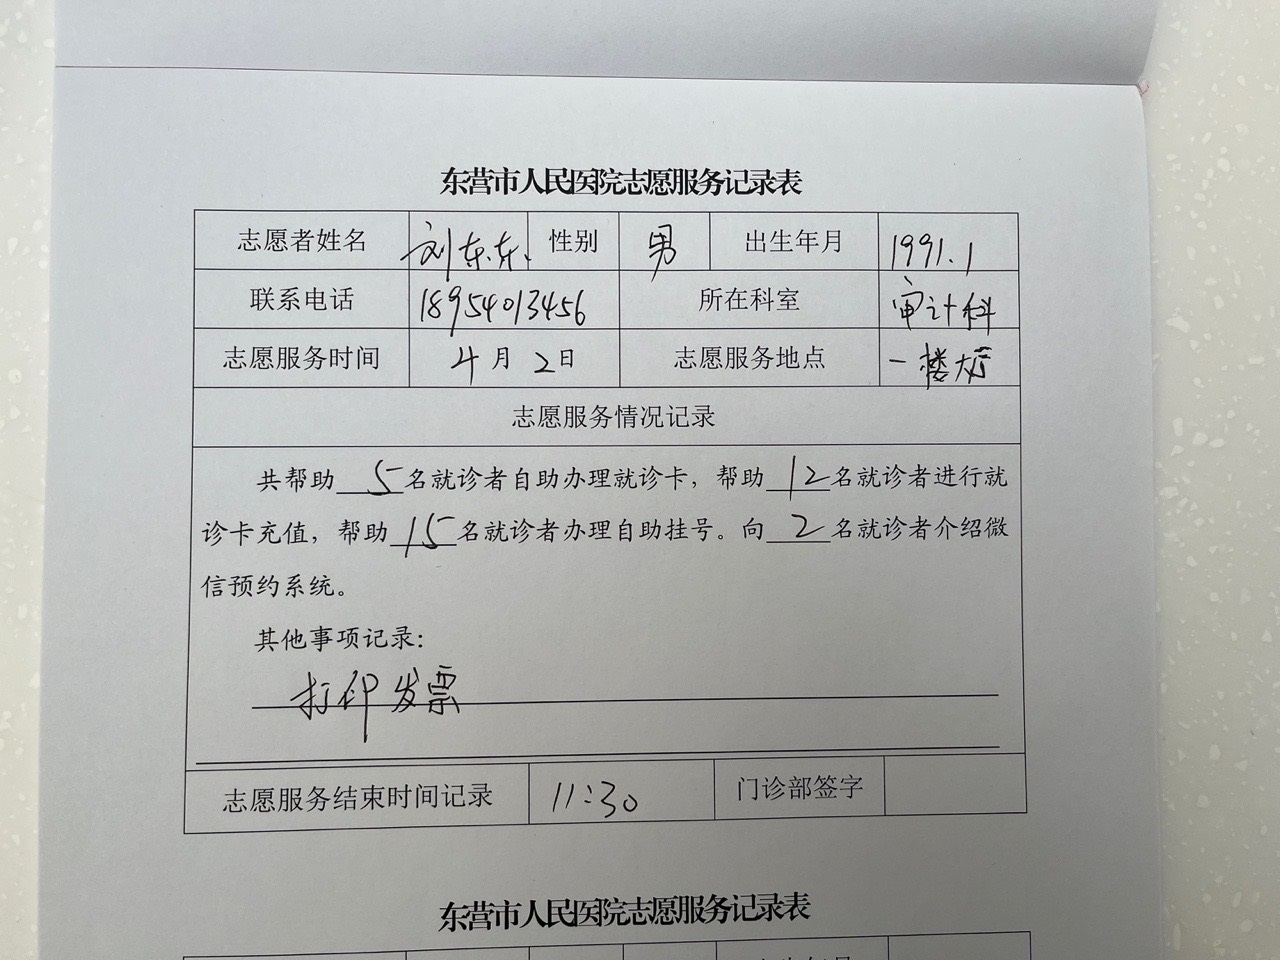 东营市人民医院志愿服务记录表
志愿者姓名 刘东东 性别 男 出生年月 1991.1
联系电话 18954013456 所在科室 审计科
志愿服务时间 4月2日 志愿服务地点 一楼大厅
志愿服务情况记录
共帮助5名就诊者自助办理就诊卡，帮助12名就诊者进行就
诊卡充值，帮助15名就诊者办理自助挂号。向2名就诊者介绍微
信预约系统。
其他事项记录：
打印发票
志愿服务结束时间记录 11:30 门诊部签字
东营市人民医院志愿服务记录表